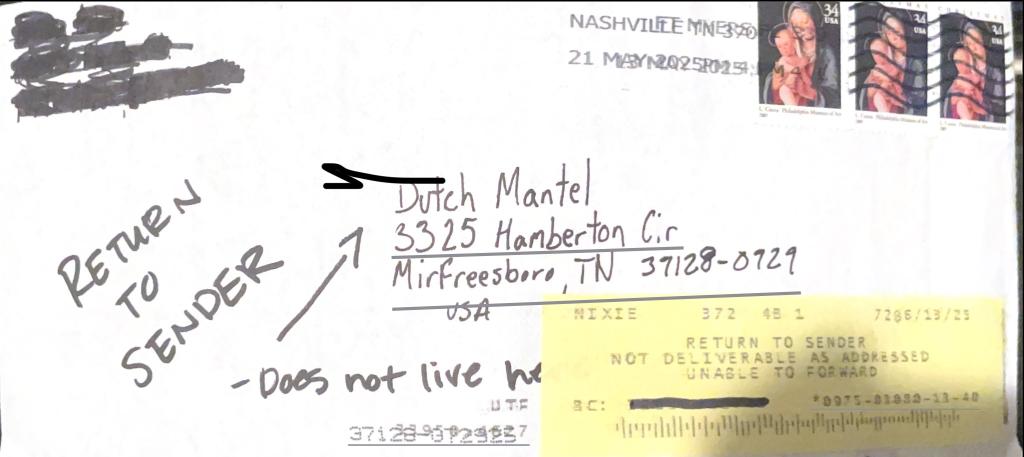 NASHVILLE TN 370
21 MAY 2025 PM 4
34
USA
34
USA
34
USA
CHRISTMAS
Philadelphia Museum of Art
Dutch Mantel
3325 Hamberton Cir
Mirfreesboro, TN 37128-0729
USA
RETURN
TO
SENDER
- Does not live he
NIXIE 372 4B 1 7286/13/25
RETURN TO SENDER
NOT DELIVERABLE AS ADDRESSED
UNABLE TO FORWARD
UTF
BC: *0975-03080-13-40